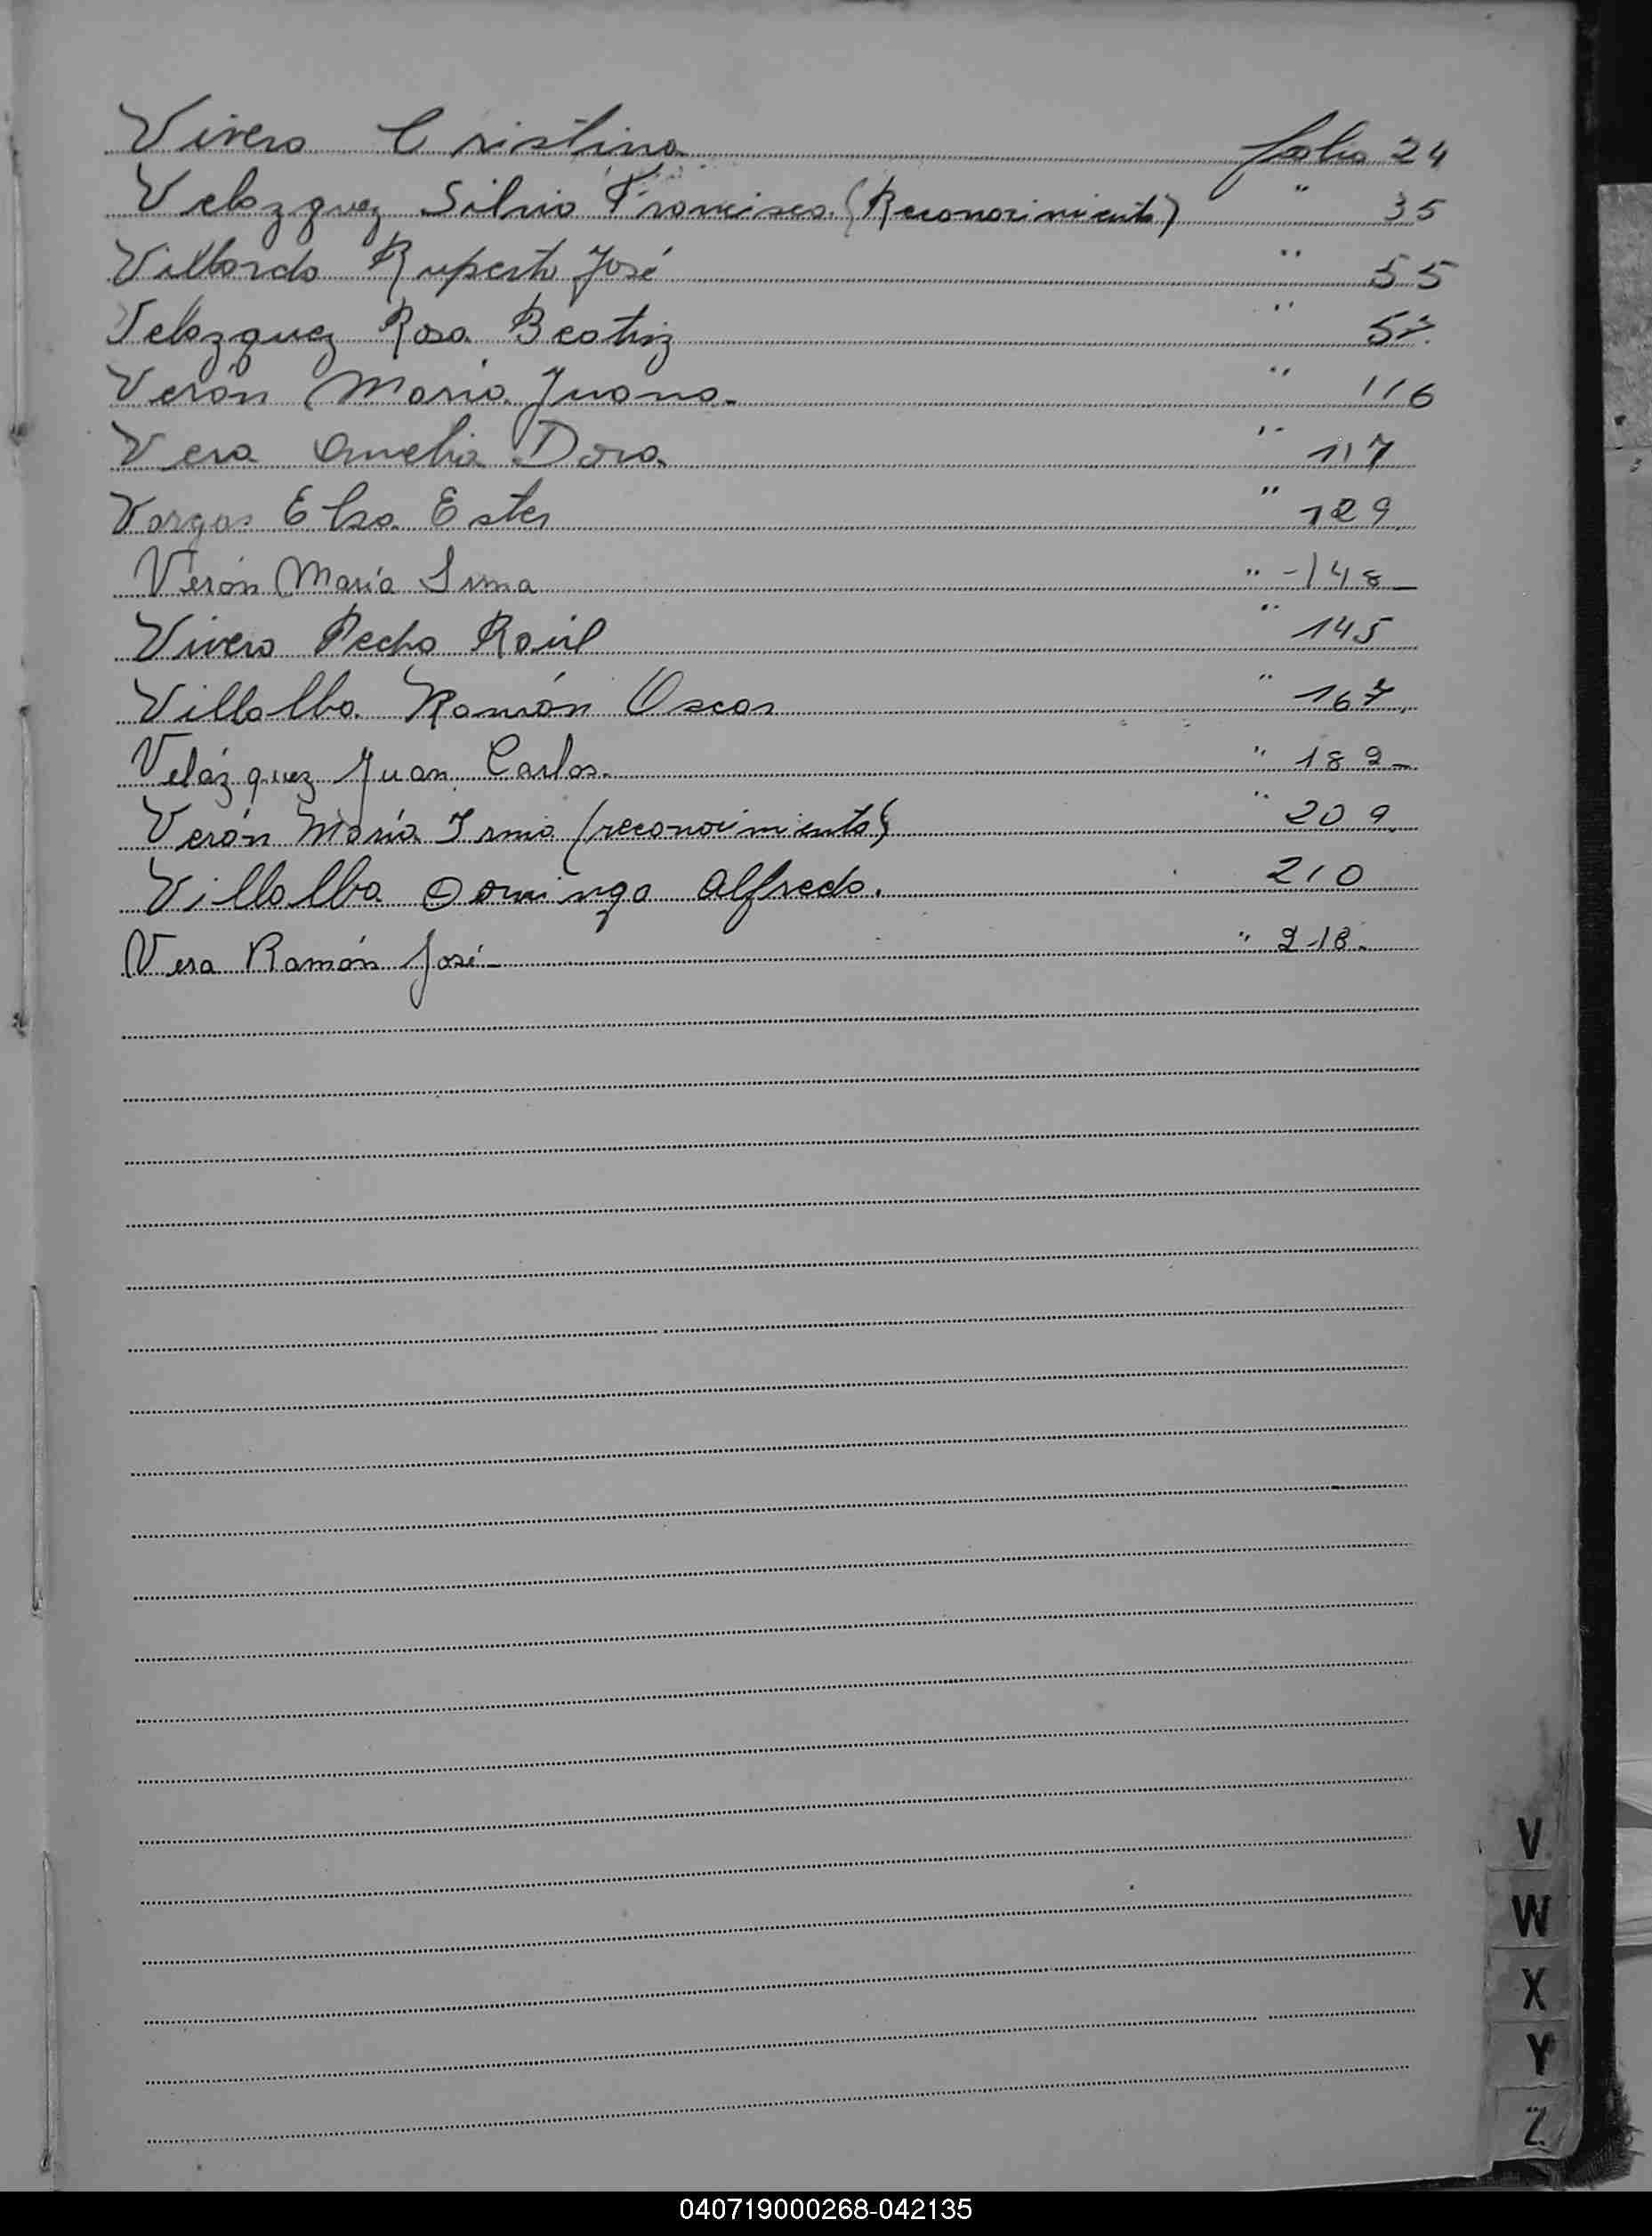 Vivero Cristina folio 24
Velozquez Silvio Francisco (Reconocimiento) " 35
Villordo Ruperto José " 55
Velozquez Rosa Beatriz " 57
Verón Maria Juana " 116
Vera Amelia Dora " 117
Vargas Elsa Ester " 129
Verón María Irma " - 148
Vivero Pedro Raúl " 145
Villalba Ramón Oscar " 167
Velázquez Juan Carlos. " 182
Verón María Irma (reconocimiento) " 209
Villalba Domingo Alfredo. 210
Vera Ramón José " 218
V
W
X
Y
Z
040719000268-042135